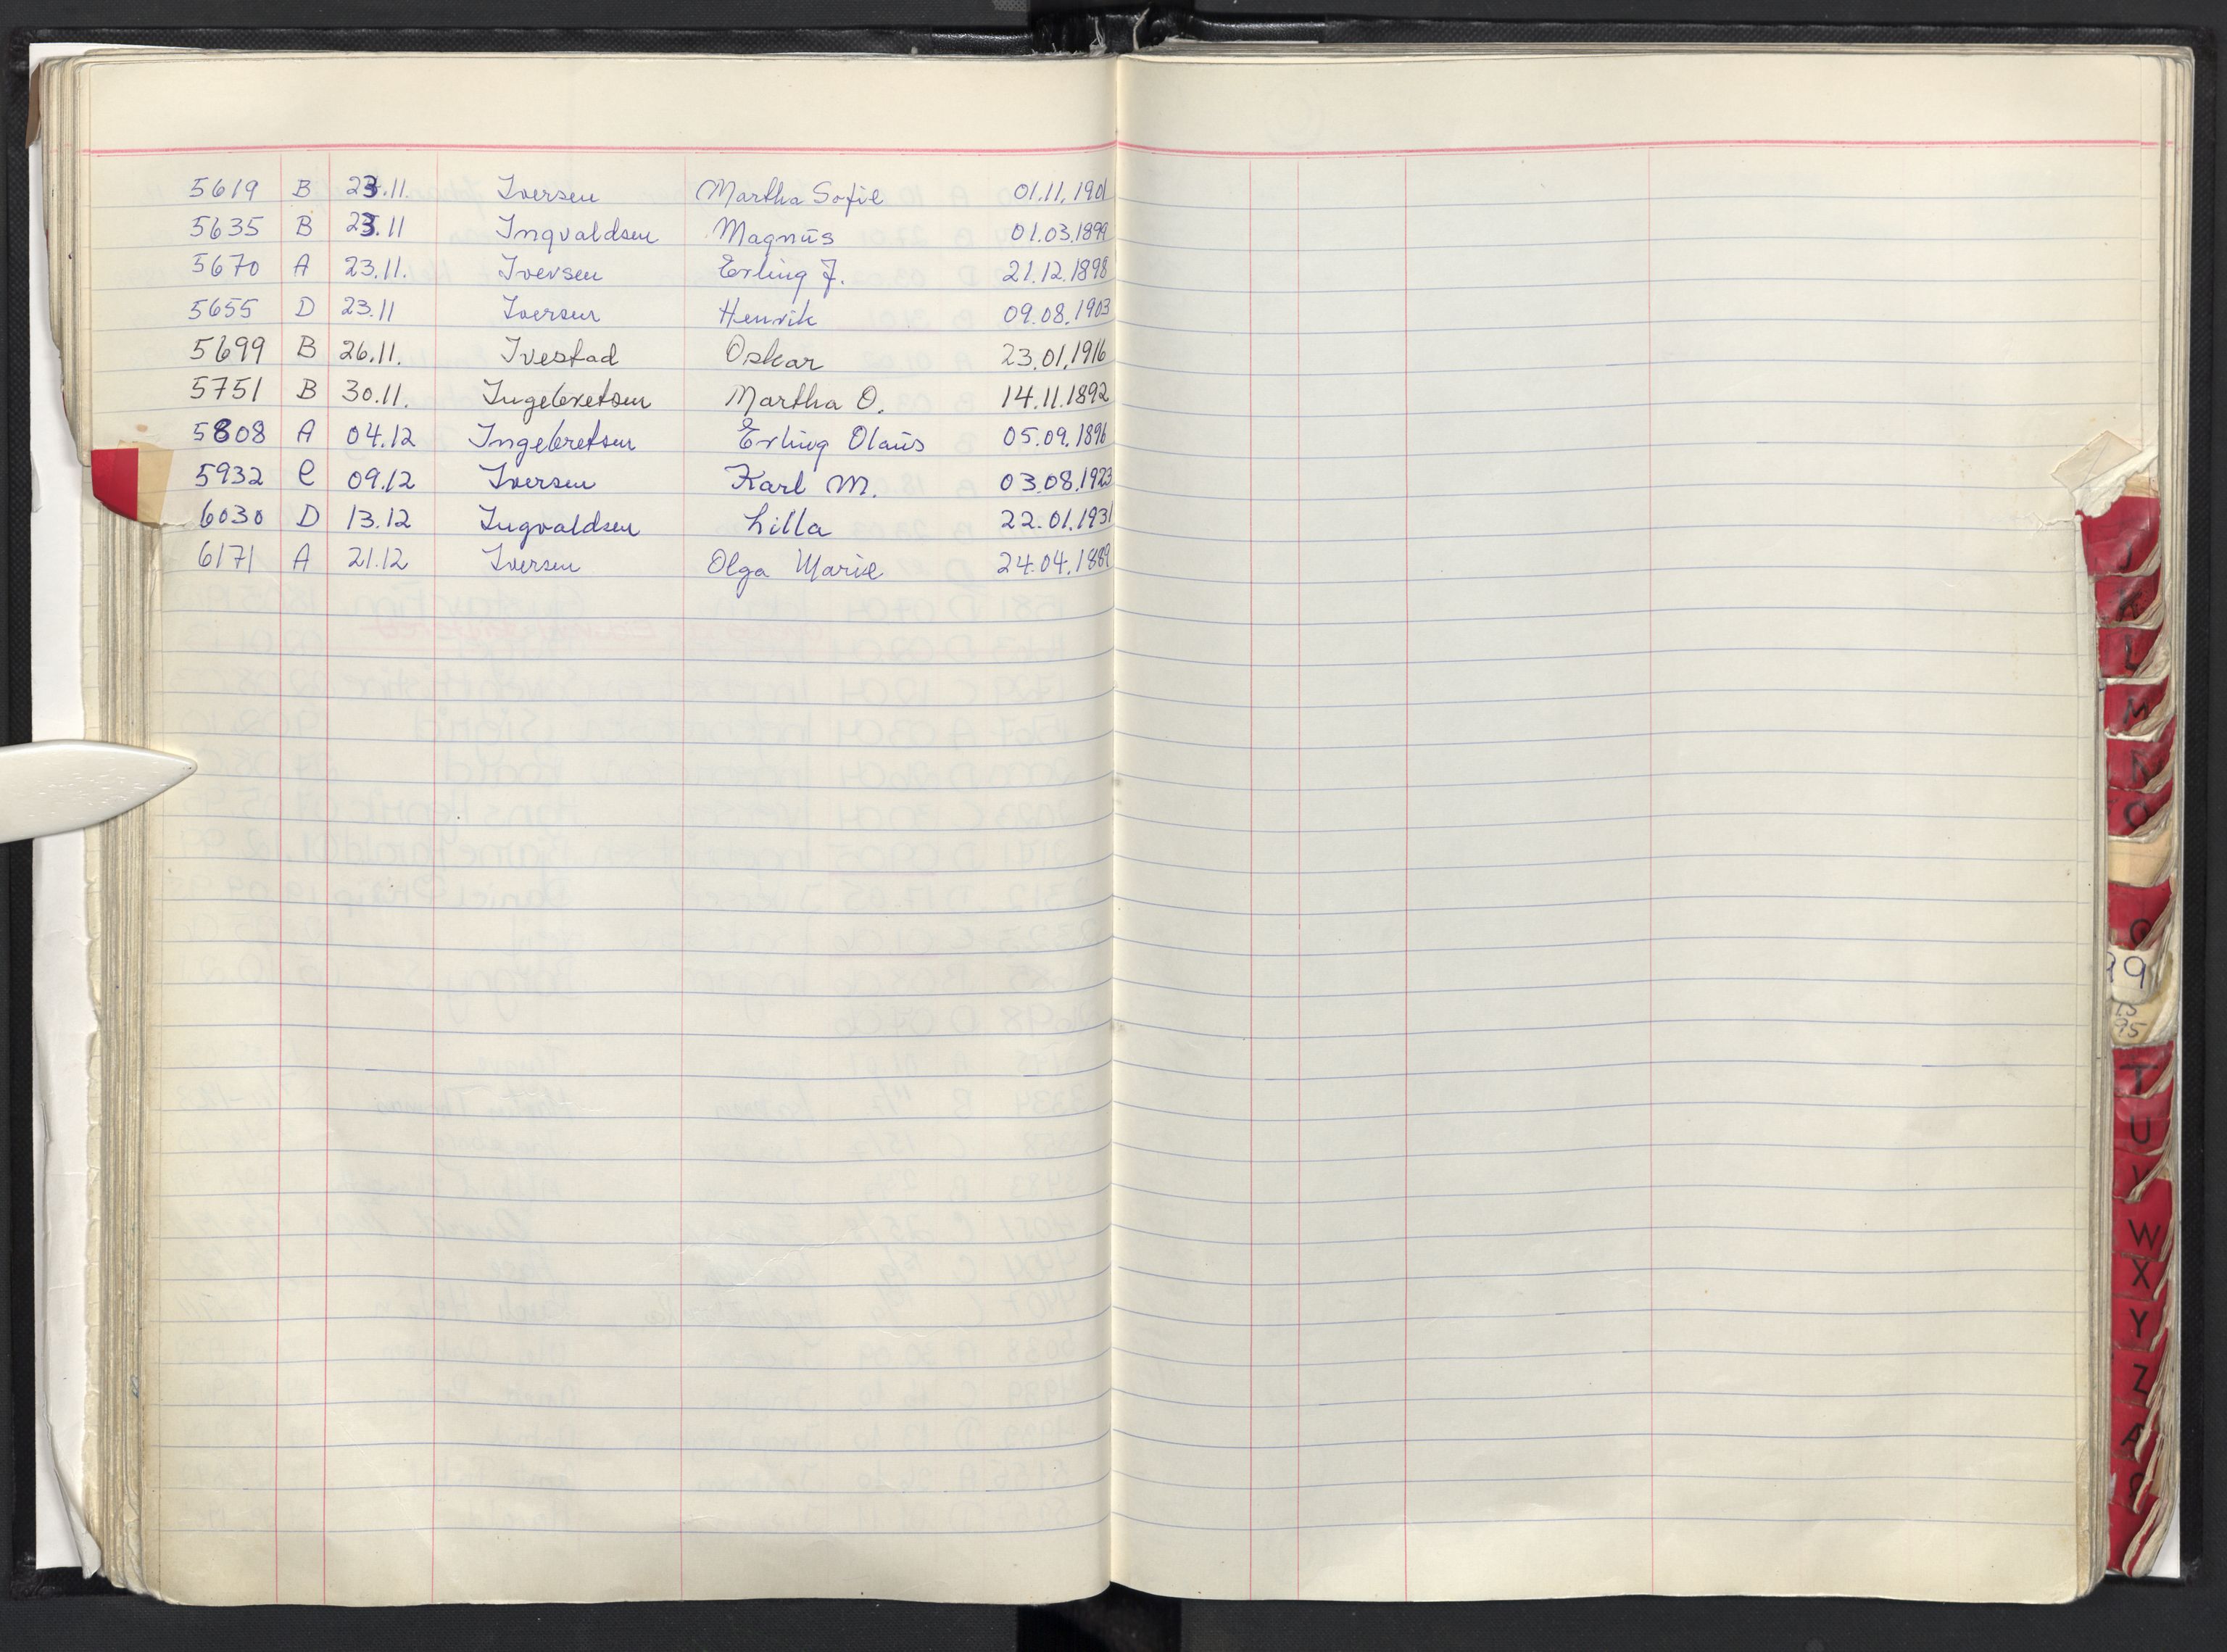 5619 B 23.11. Iversen Martha Sofie 01.11.1901
5635 B 23.11 Ingvaldsen Magnus 01.03.1899
5670 A 23.11. Iversen Erling J. 21.12.1898
5655 D 23.11 Iversen Henrik 09.08.1903
5699 B 26.11. Ivestad Oskar 23.01.1916
5751 B 30.11. Ingebretsen Martha O. 14.11.1892
5808 A 04.12 Ingebretsen Erling Olaus 05.09.1896
5932 C 09.12 Iversen Karl M. 03.08.1923
6030 D 13.12 Ingvaldsen Lilla 22.01.1931
6171 A 21.12 Iversen Olga Marie 24.04.1889
J
K
L
M
N
O
99
95
T
U
V
W
X
Y
Z